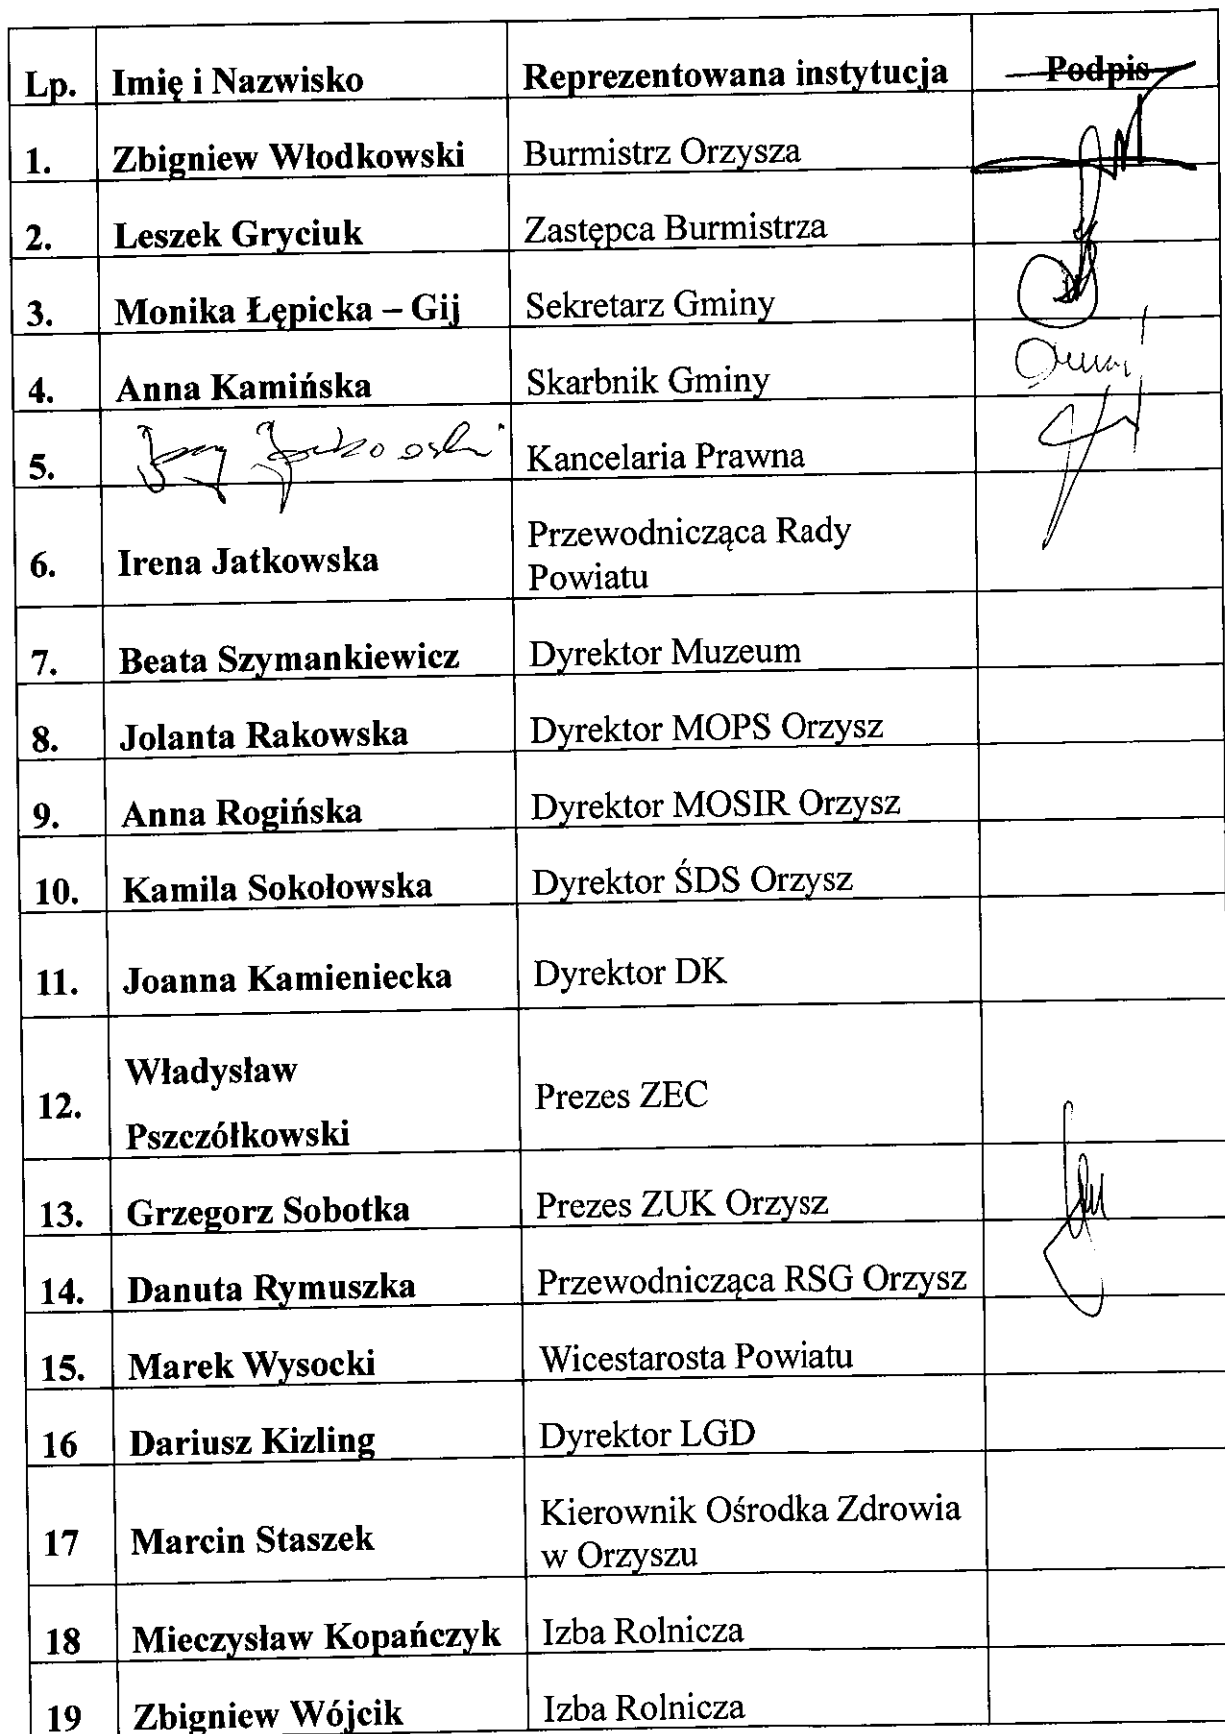 Lp. Imię i Nazwisko Reprezentowana instytucja Podpis
1. Zbigniew Włodkowski Burmistrz Orzysza
2. Leszek Gryciuk Zastępca Burmistrza
3. Monika Łępicka – Gij Sekretarz Gminy
4. Anna Kamińska Skarbnik Gminy
5. Kancelaria Prawna
6. Irena Jatkowska Przewodnicząca Rady
Powiatu
7. Beata Szymankiewicz Dyrektor Muzeum
8. Jolanta Rakowska Dyrektor MOPS Orzysz
9. Anna Rogińska Dyrektor MOSIR Orzysz
10. Kamila Sokołowska Dyrektor ŚDS Orzysz
11. Joanna Kamieniecka Dyrektor DK
12. Władysław
Pszczółkowski Prezes ZEC
13. Grzegorz Sobotka Prezes ZUK Orzysz
14. Danuta Rymuszka Przewodnicząca RSG Orzysz
15. Marek Wysocki Wicestarosta Powiatu
16 Dariusz Kizling Dyrektor LGD
17 Marcin Staszek Kierownik Ośrodka Zdrowia
w Orzyszu
18 Mieczysław Kopańczyk Izba Rolnicza
19 Zbigniew Wójcik Izba Rolnicza